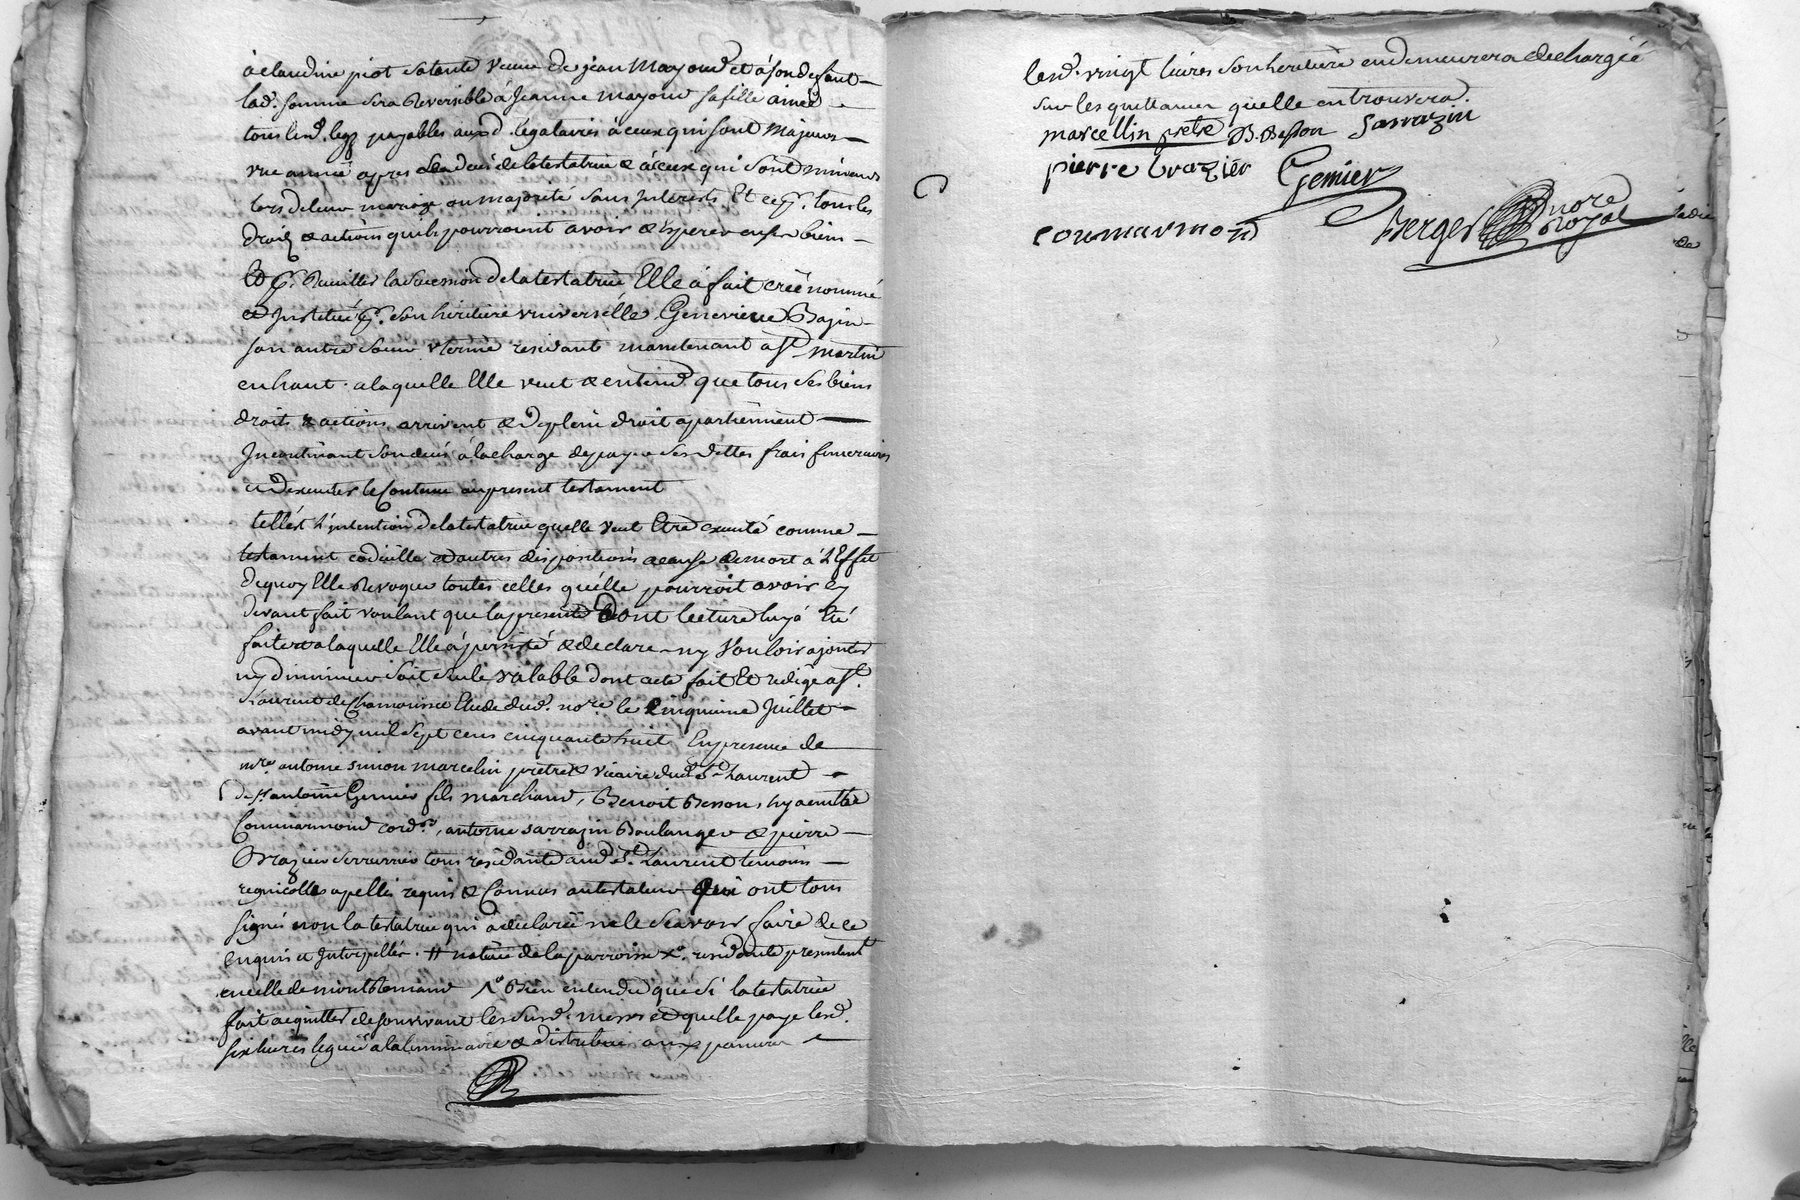 a claudine piot sa tante veuve de jean Mayoud et a son deffaut
lad. somme sera Reversible a Jeanne mayoud sa fille ainée
tous lesd. legs payables auxd. legataires a ceux qui sont Majeurs
une année apres le deces de la testatrice & a ceux qui sont mineurs
lors de leur mariage ou majorité sans Interests Et ce pr. tous les
droits & actions quils pourroint avoir & esperer en ses biens
Et pr. Recuillir la sucession de la testatrice Elle à fait créé nommé
et Institué pr. son héritiere universélle Genevieve Bazin
son autre soeur uterine residante maintenant a St. martin
en haut. a laquelle Elle veut & entend que tous ses biens
droits & actions arrivent & de plein droit apartiennent
Incontinant son deces à la charge de payer ses dettes frais funeraires
et dexecuter le Contenu au present testament
tell est l'intention de la testatrice quelle veut Etre executé comme
testament codicille et autres dispositions a cause de mort a l'Effet
de quoy Elle Revoque toutes celles quélle pourroit avoir cy
devant fait voulant que la presente Dont lecture luy à Eté
faite et a laquelle Elle à persisté & declare ny Vouloir ajouter
ny diminuer soit seule valable dont acte fait Et redigé a St.
Laurent de Chamousset Etude dud. nore. le cinquieme Juillet
avant midy mil sept cens cinquante huit En presence de
mre. antoine simon marcelin pretre & vicaire dud. St. Laurent
de sr. antoine Gemier fils marchand, Benoit Besson, hyacinthe
Coumarmond cord.er, antoine sarrazin Boulanger & pierre
Brazier serrurier tous residants aud. St. Laurent temoins
regnicolles apellés requis & Connus
Qui ont tous
signé non la testatrice qui a declarée ne le scavoir faire de ce
enquis et Interpellée. # native de la parroisse
residante presentement
en celle de montRomand
Bien entendu que si la testatrice
fait acquitter de son vivant les susd. messes et quelle paye lesd.
six livres legués a la luminaire & distribue aux pauvres
lesd. vingt livres son heritiere en demeurera dechargée
sur les quittances quelle en trouvera.
marcellin pretre B. Besson Sarrazin
pierre brazier Gemier
coumarmond Berger nore Royal